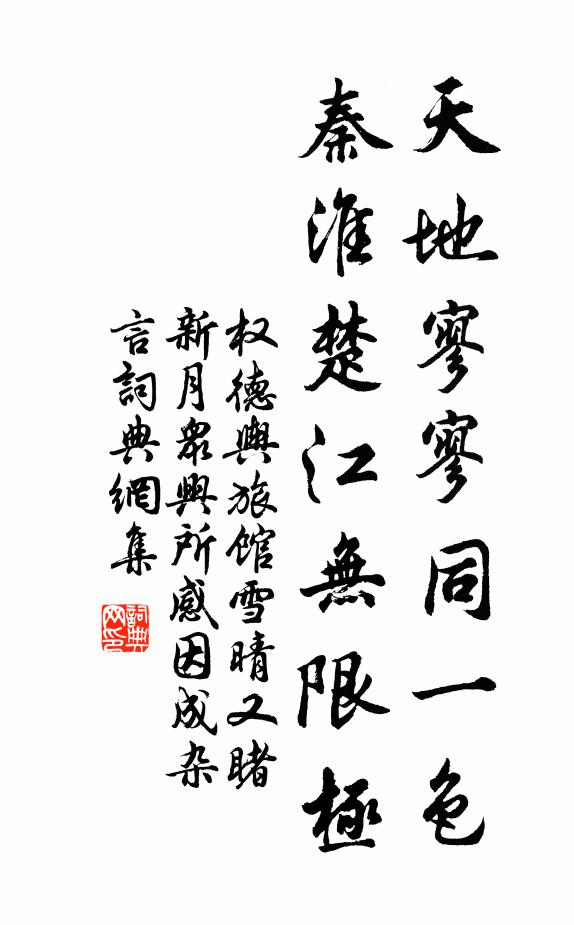 天地寥寥同一色
秦淮楚江無限極
权德輿旅馆雪晴又睹
新月衆興所感因成杂
言詞典網集
詞典
网印